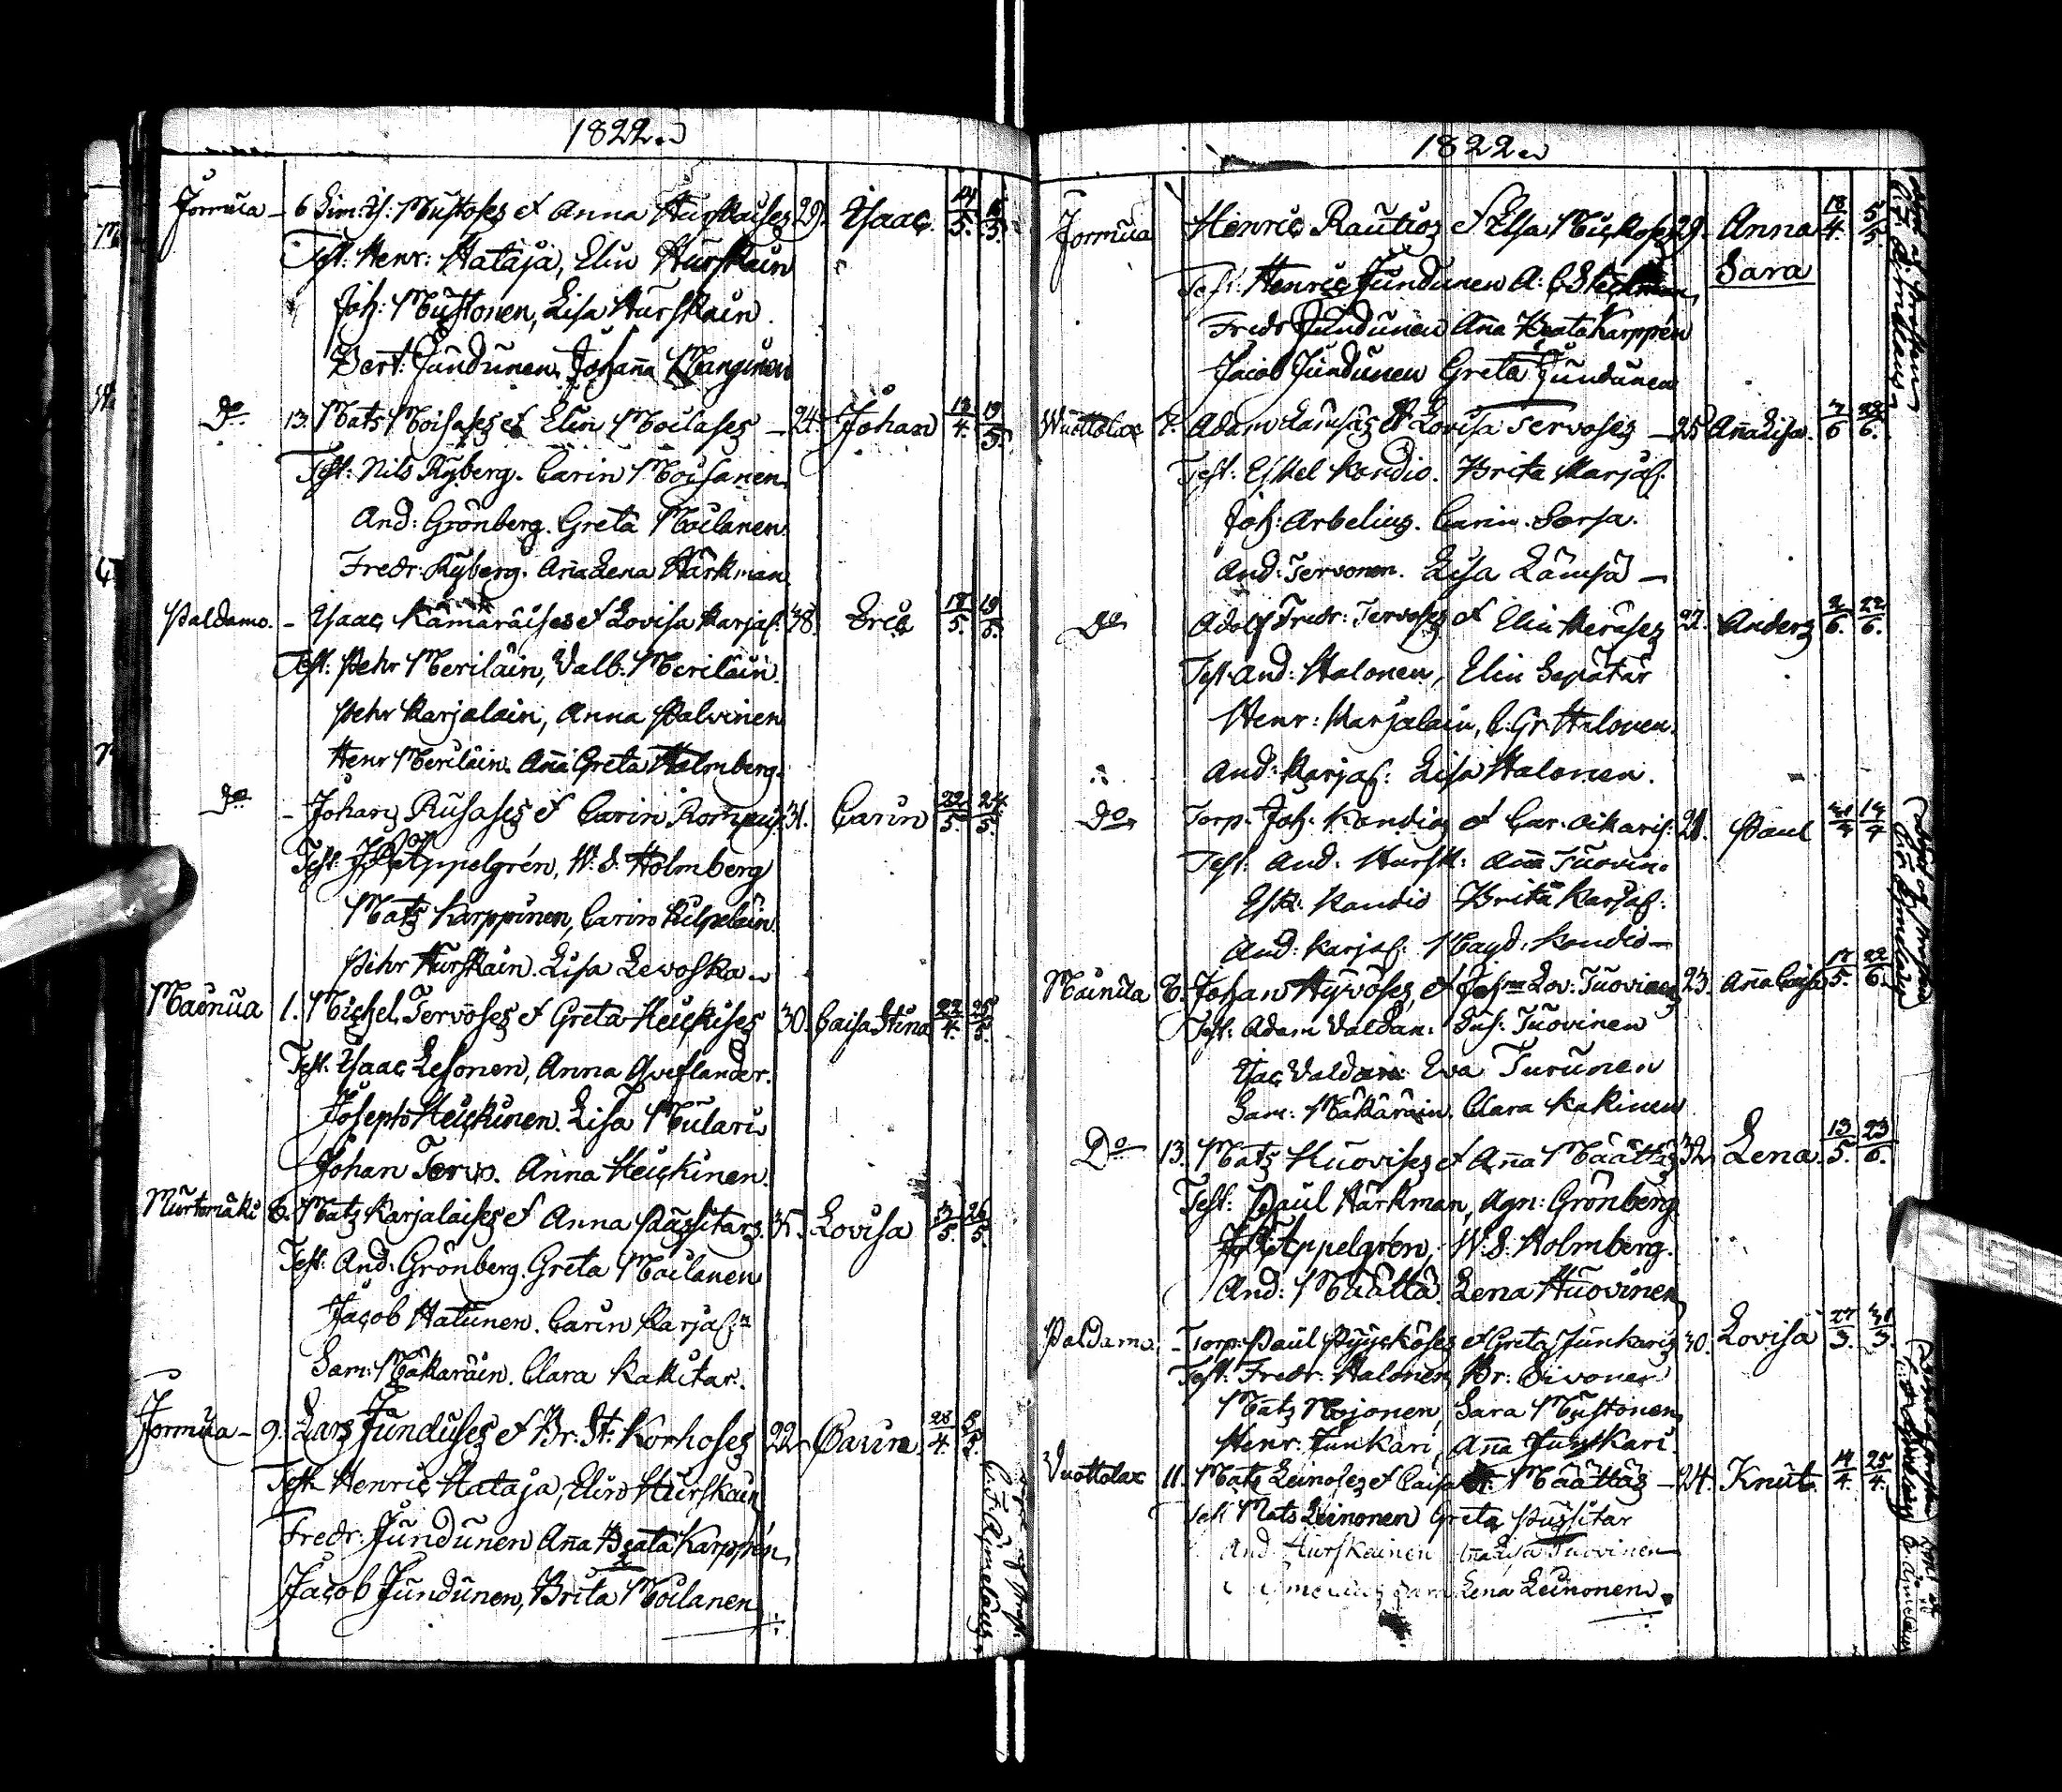 1822.
Jormua - 6 Sim: Is: Mustoses et Anna Hurskaises 29. Isaac. 14/5. 5.
Test: Henr: Hataja, Elin Hurskain
Joh: Mustonen, Lisa Hurskain.
Bert: Jundunen, Johanna Manginen
Do 13. Mats Moisases et Elin Moilases - 24. Johan 13/4. 19/5.
Test: Nils Ryberg. Carin Moisanen.
And: Grönberg. Greta Moilanen.
Fredr: Ryberg. Aña Lena Härkman
Paldamo. - Isaac Kämäräises et Lovisa Karjal: 38. Eric 18/5. 19/5.
Test: Pehr Meriläin, Valb: Meriläin.
Pehr Karjalain, Anna Palvinen
Henr Meriläin. Aña Greta Holmberg.
Do - Johans Rusases et Carin Rompuj: 31. Carin 22/5. 24/5.
Test: Appelgrén, W: S: Holmberg
Mats Karppinen, Carin Kilpeläin.
Pehr Hurskain. Lisa Levoska
Mainua 1. Michel Tervoses et Greta Heickises 30. Caisa Stina 22/4. 25/5.
Test: Isaac Lesonen, Anna Qveflander.
Joseph Heickinen. Lisa Mulari
Johan Tervo. Anna Heickinen.
Murtomäki 8. Mats Karjalaises et Anna Pääsitars. 35. Lovisa 13/5. 26/5.
Test: And: Grönberg. Greta Moilanen
Jacob Hatunen. Carin Karjal:n
Sam: Mäkäräin. Clara Kakitar.
Jormua - 9. Lars Junduses et Br: St: Korhoses 22. Carin 28/4. 5.
Test Henric Hataja, Elin Hurskain
Fredr: Jundunen Aña Beata Karppén,
Jacob Jundunen, Brita Moilanen
C: F: Ajmelaeus
1822.
Jormua Henric Rautios et Elsa Mickoses 29. Anna 18/4. 5/5.
Sara
Test: Henric Jundunen A: C Steckman
Fredr Jundunen Aña Beata Karppén
Jacob Jundunen Greta Jundunen
Wuottolax 7. Adam Lämsäs et Lovisa Tervoses - 25 Aña Lisa. 7/6 22/6.
Test: Eskel Kandio. Brita Karjal.
Joh: Arbelius. Carin Sorsa.
And: Tervonen. Lisa Lämsä -
Do Adolf Fredr: Tervoses et Elin Keräses 22. Anders 2/6. 22/6.
Test And: Halonen, Elin Sepätär
Henr: Karjalain, C: Gr Halonen.
And: Karjal: Lisa Halonen.
Do Torp. Joh. Kandios et Car. Oikaris: 21. Paul 14/4
Test: And. Hursk: Aña Tuovin.
Esk: Kandio Brita Karjal:
And: Karjal: Magd: Kandio -
Mainua 8. Johan Hyvöses, et Joh:na Lov: Tuovines 23. Aña Caisa 17/5. 22/6.
Test: Adam Valdan: Sus: Tuovinen
Isac Valdan: Eva Turunen
Sam: Mäkäräin. Clara Kakinen
Do 13. Mats Huovises et Aña Määttäs 32. Lena 13/5. 23/6.
Test: Paul Härkman, Agn: Grönberg
Appelgrén, W: S. Holmberg.
And: Määttä. Lena Huovinen
Paldamo - Torp: Paul Pyykköses et Greta Junkaris 30. Lovisa 27/3. 31/3.
Test: Fredr: Halonen, Br: Sivonen
Mats Mojonen, Sara Mustonen,
Henr: Junkari, Aña Junkari.
Vuottolax 11. Mats Leinoses et Caisa Määttäs - 24. Knut 14/4. 25/4.
Test Mats Leinonen Greta Pussitar
And Hurskainen Aña Lisa Tuovinen
Lena Leinonen.
C: F: Ajmelaeus